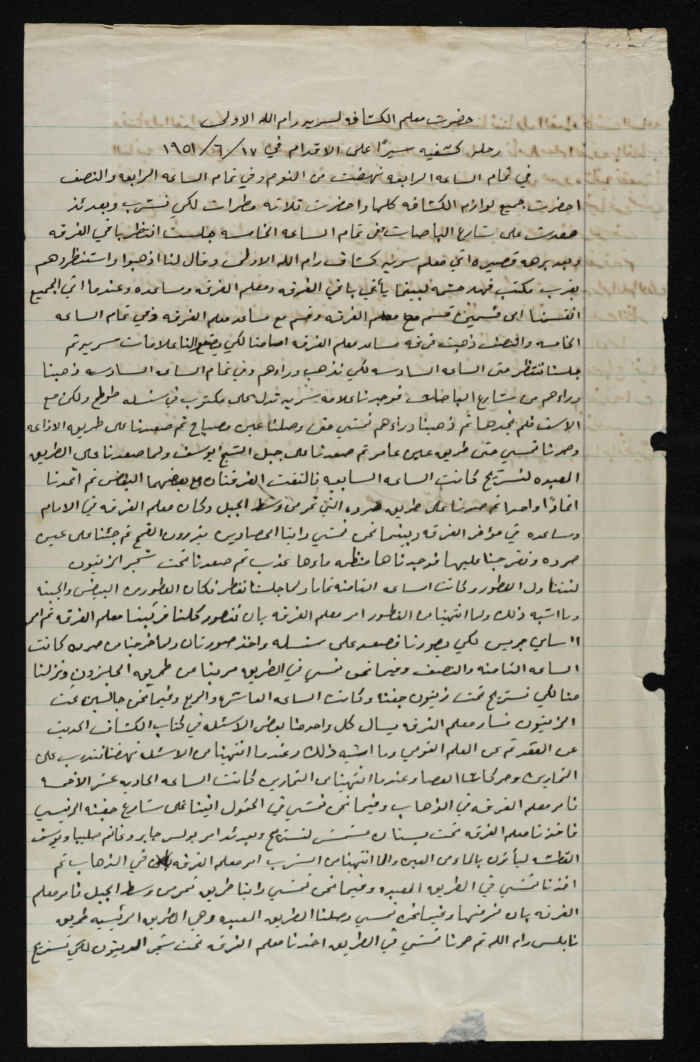 حضرت معلم الكشافه لسريه رام الله الاولى
رحله كشفيه سيرًا على الاقدام في ١٧/ ٦/ ١٩٥١
في تمام الساعه الرابعه نهضت من النوم وفي تمام الساعه الرابعه والنصف
احضرت جميع لوازم الكشافه كلها واحضرت ثلاثه مطرات لكي نشرب وبعدئذ
صعدت على شارع الباصات في تمام الساعه الخامسه جلست انتظر باقي الفرقه
وبعد برهه قصيره اتى معلم سريه كشاف رام الله الاولى وقال لنا اذهبوا واستنظروهم
بقرب مكتب فهد حتى لبينما يأتي باقي الفرقه ومعلم الفرقه ومساعده وعندما اتى الجميع
انقسمنا الى قسمين قسم مع معلم الفرقه وقسم مع مساعد معلم الفرقه وفي تمام الساعه
الخامسه والنصف ذهبت فرقه مساعد معلم الفرقه امامنا لكي يضعوا لنا علامات سريه ثم
جلسنا ننتظر حتى الساعه السادسه لكي نذهب وراءهم وفي تمام الساعه السادسه ذهبنا
وراءهم من شارع الباصات فوجدنا علامه سريه تدل على مكتوب في سنسله طوطح ولكن مع
الاسف فلم نجدها ثم ذهبنا وراءهم نمشي حتى وصلنا عين مصباح ثم صعدنا على طريق الاذاعه
وصرنا نمشي حتى طريق عين عامر ثم صعدنا على جبل الشيخ يوسف ولما صعدنا على الطريق
المعبده لنستريح كانت الساعه السابعه فالتقت الفرقتان مع بعضهما البعض ثم اتحدنا
اتحادًا واحدا ثم صرنا على طريق صرده التي تمر من وسط الجبل وكان معلم الفرقه في الامام
ومساعده في مؤخر الفرقه وبينما نحن نمشي راينا الحصادين يذرون القمح ثم جئنا على عين
صرده وتفرجنا عليها فوجدناها منظمه ماءها عذب ثم صعدنا تحت شجر الزيتون
لنتناول الفطور وكانت الساعه الثامنه تماما ولما جلسنا نفطر فكان الفطور من البيض والجبنه
وما اشبه ذلك ولما انتهينا من الفطور امر معلم الفرقه بان نتصور كلنا فرتبنا معلم الفرقه ثم امر
سامي جريس لكي يصورنا فصعد على سنسله واخذ صورتان ولما خرجنا من صرده كانت
الساعه الثامنه والنصف وفيما نحن نمشي في الطريق مررنا من طريق الحلزون ونزلنا
منها لكي نستريح تحت زيتون جفنا وكانت الساعه العاشره والربع وفيما نحن جالسين تحت
الزيتون فصار معلم الفرقه يسال كل واحد منا بعض الاسئله في كتاب الكشاف الحديث
عن العقد ثم عن العلم القومي وما اشبه ذلك وعندما انتهينا من الاسئله نهضنا نتدرب على
التمارين وحركات العصا وعندما انتهينا من التمارين كانت الساعه الحاديه عشر الا خمسه
فامر معلم الفرقه في الذهاب وفيما نحن نمشي في الحقول اتينا على شارع جفنه الرئيسي
فاخذنا معلم الفرقه تحت بستان مشمش لنستريح وبعدئذ امر بولس جابر وغانم صليبا ويوسف
ليأتون بالماء من العين ولما انتهينا من الشرب امر معلم الفرقه في الذهاب ثم
اخذنا نمشي في الطريق المعبده وفيما نحن نمشي راينا طريق تمر من وسط الجبل فامر معلم
الفرقه بان نمر منها وفيما نحن نمشي وصلنا الطريق المعبده وهي الطريق الرئيسيه طريق
نابلس رام الله ثم صرنا نمشي في الطريق اخذنا معلم الفرقه تحت شجر الزيتون لكي نستريح